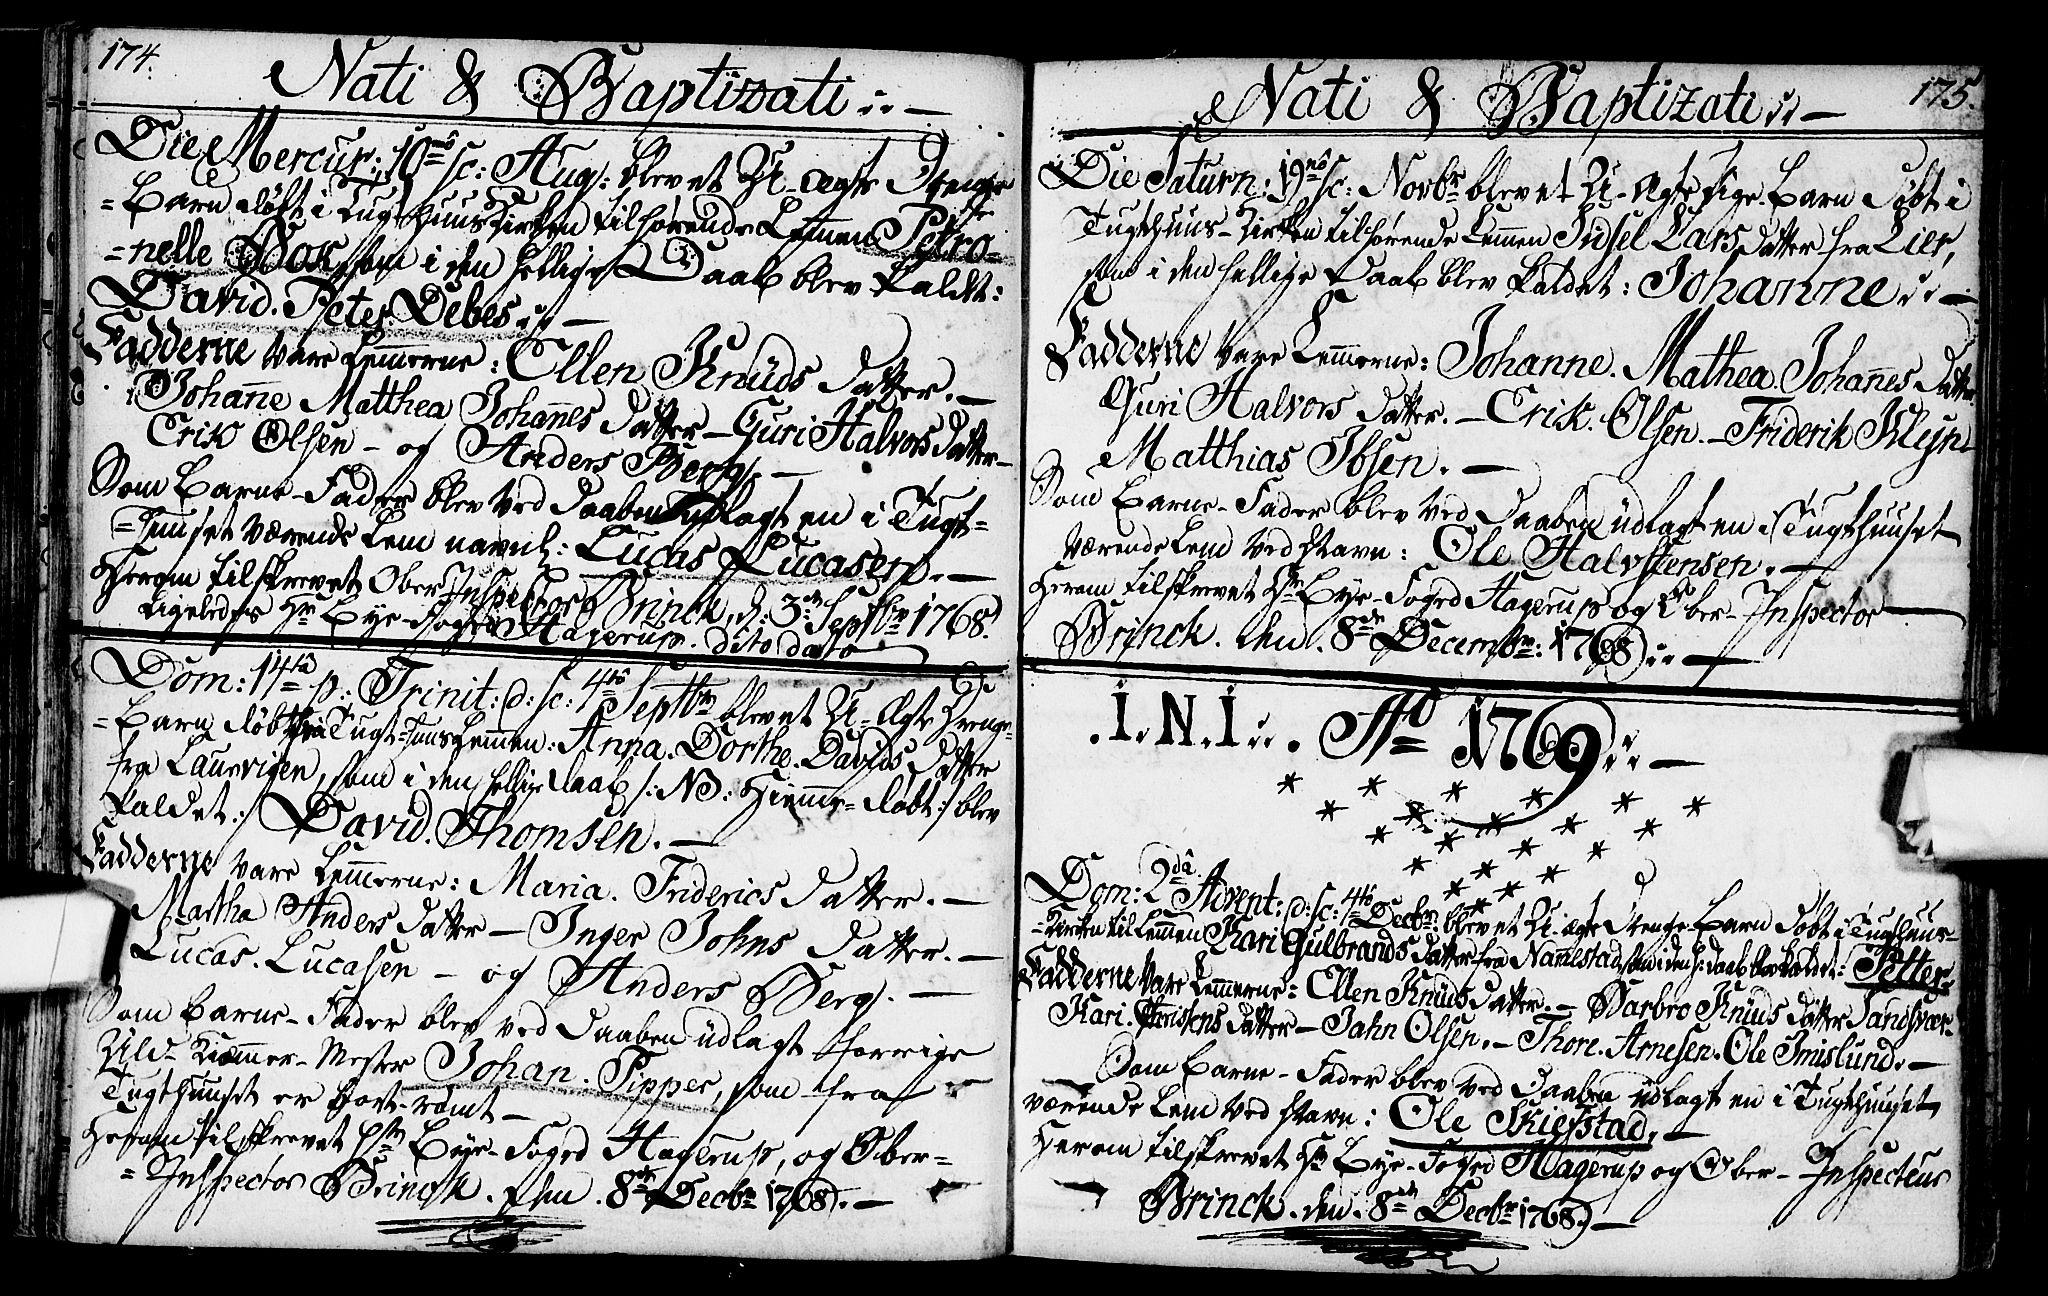 174.
Nati & Baptizati :: —
Die Mercur: 10mô sc: Aug: blev et U-ægte Drenge
=Barn døbt i Tugthuus Kirken tilhørende Lemmen Petro=
=nelle Bok, som i den hellige Daab blev kaldt:
David. Peter Debes :: —
Fadderne vare Lemmerne: Ellen Knüds Datter. —
Johañe Matthea Johañes Datter — Guri Halvors Datter —
Erik Olsen — og Anders Berg. —
Som Barne-Fader blev ved Daaben udlagt en i Tugt=
=huuset værende Lem navnl: Lucas Lucasen. —
Herom tilskrevet Ober Inspector Brinck, d: 3de Septbr 1768.
Ligeledes Hr Bye-Foged Hagerup. dito dato
Dom: 14ta p: Trinit: d: sc: 4tô Septbr blev et U-Ægte Drenge=
=Barn døbt fra Tugt-huus Lemmen: Anna. Dorthe. Davids Datter
fra Laurvigen, som i den hellige Daab /: NB: Hiemme-døbt :/ blev
kaldet :/ David. Thomsen. —
Fadderne vare Lemmerne: Maria. Friderics Datter. —
Martha Anders Datter — Inger Johns Datter. —
Lucas. Lucasen — og Anders Berg. —
Som Barne-Fader blev ved Daaben udlagt forrige
Uld-Kiæmmer-Mester Johan. Pipper, som fra
Tugthuuset er bort-rømt —
Herom tilskrevet Hr Bye-Foged Hagerup, og Ober=
=Inspector Brinck. den. 8de Decbr 1768. —
175.
Nati & Baptizati :: —
Die Saturn: 19nô sc: Novbr blev et U-ægte Pige-Barn døbt i
Tugthuus-Kirken tilhørende Lemmen Sidsel Lars Datter fra Lier,
som i den hellige Daab blev kaldet: Johanne :: —
Fadderne vare Lemmerne: Johanne. Mathea. Johañes Datter
Guri Halvors Datter. — Erik. Olsen. — Friderik Kleyn
Matthias Ibsen. —
Som Barne-Fader blev ved Daaben udlagt en i Tugthuuset
værende Lem ved Navn: Ole Halvstensen. —
Herom tilskrevet Hr Bye-Foged Hagerup og Ober-Inspector
Brinck. den. 8de Decembr: 1768 :: —
.I.N.I :. Ao 1769 :: —
Dom: 2dâ Advent: d: sc: 4tô Decbr: blev et U-ægte Drenge-Barn døbt i Tugthuus-
-Kirken til Lemmen Kari Gulbrands Datter fra Nannestad, som i den h: Daab blev kaldet: Petter
Fadderne vare Lemmerne: Ellen Knüds Datter. — Barbro Knüds Datter Sandsvær-
Kari. Christens Datter — Jahn Olsen. — Thore. Arnesen. Ole Imislund. —
Som Barne-Fader blev ved Daaben udlagt en i Tugthuuset
værende Lem ved Navn: Ole Skiefstad. —
Herom tilskrevet Hr Bye-Foged Hagerup og Ober-Inspecteur
Brinck. den. 8de Decbr 1768. —